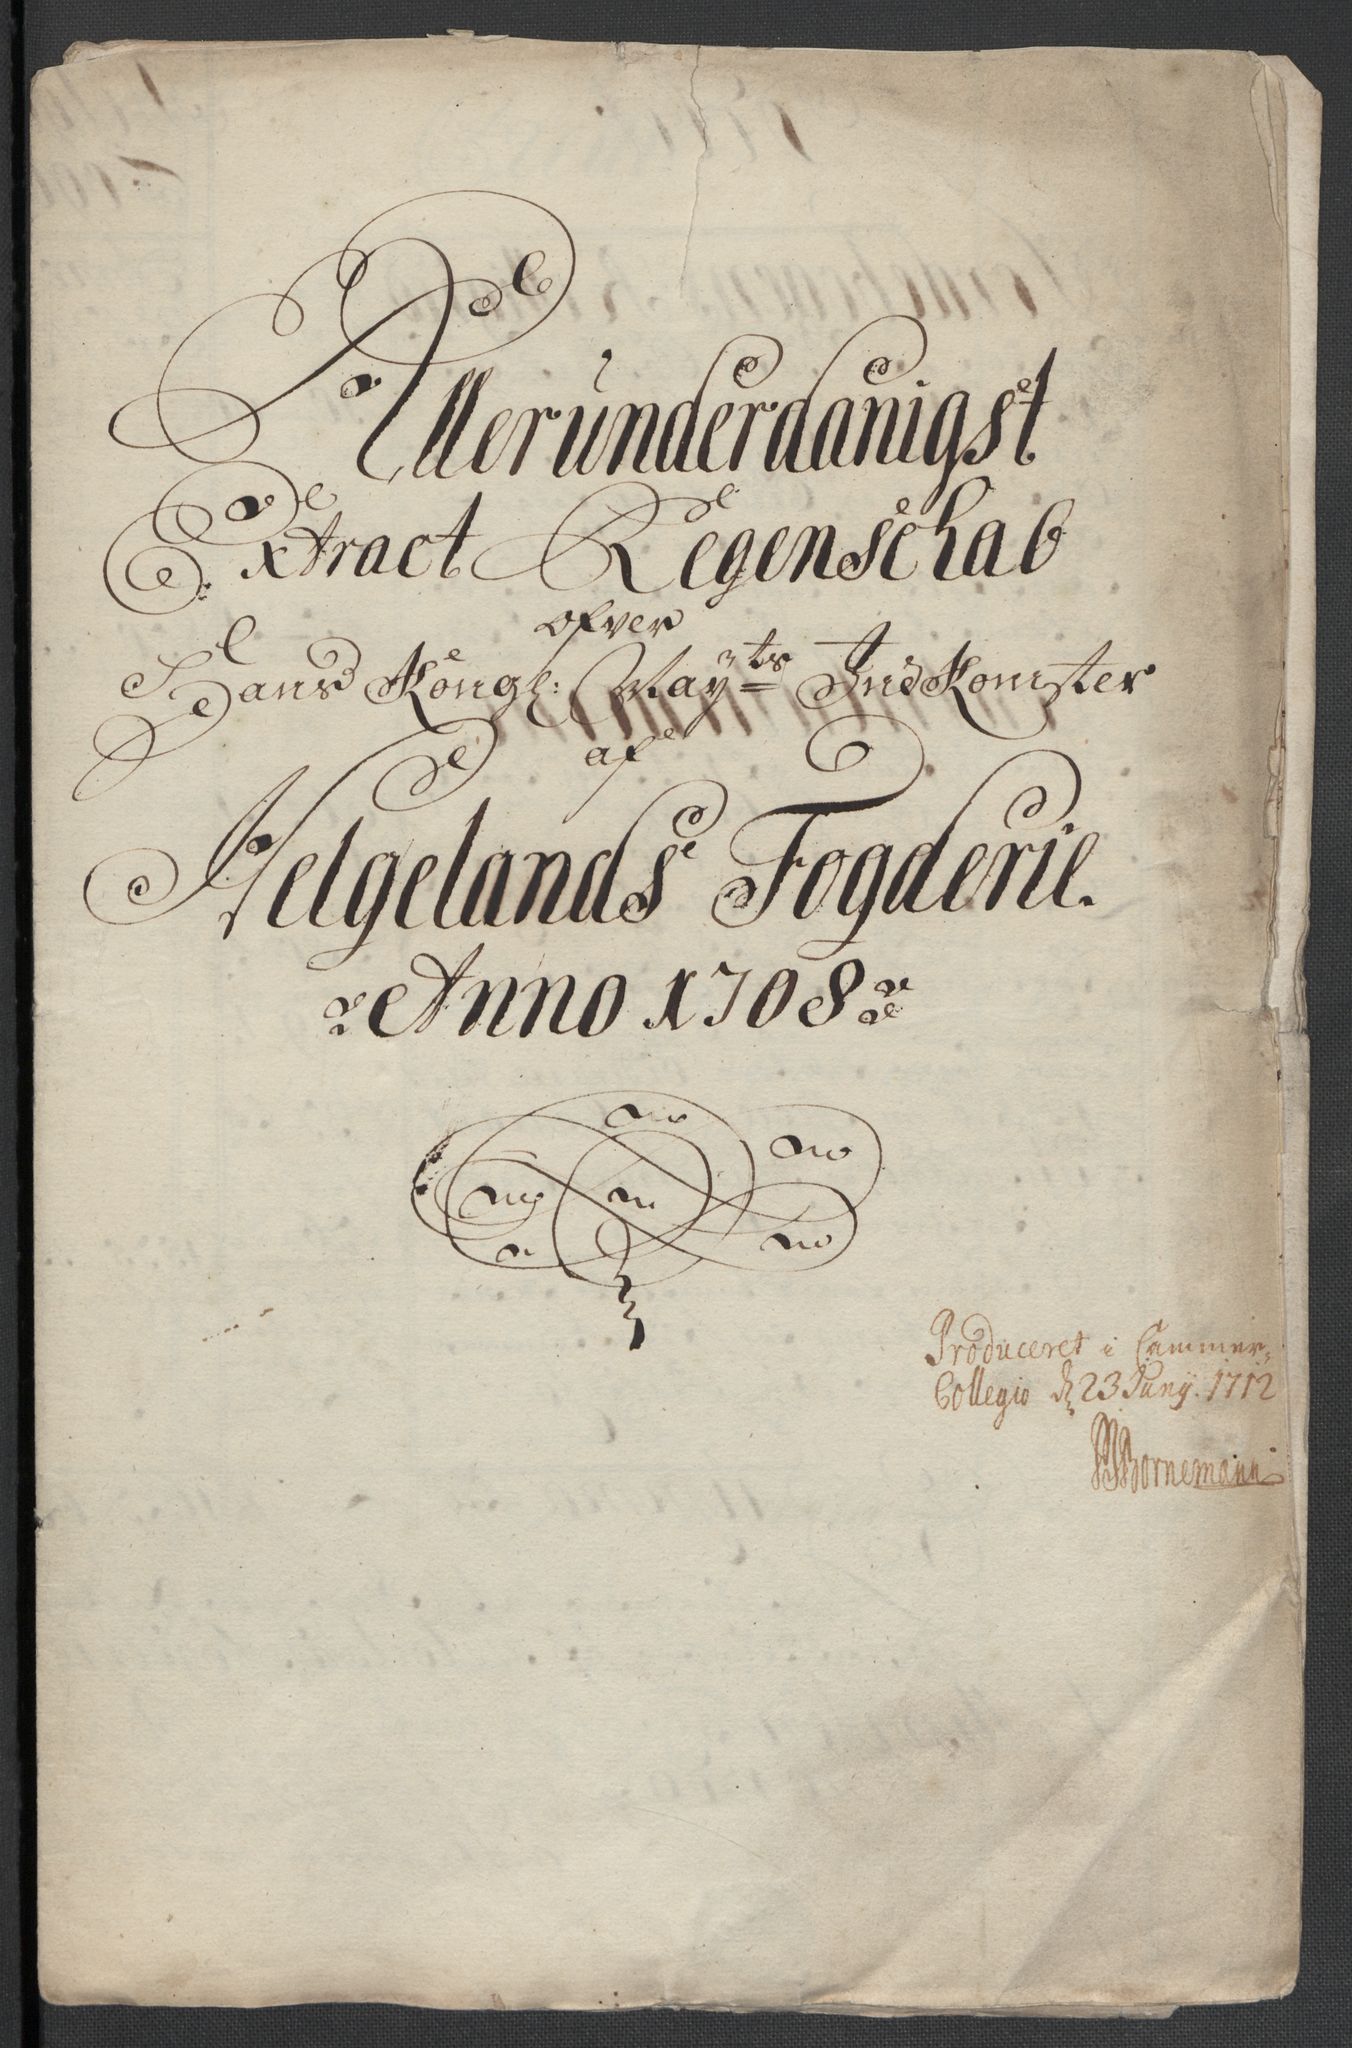 Allerunderdanigst
Extract Regenschab
ofver
Hans Kongl: Mayts Indkomster
af
Helgelands Fogderie.
Anno 1708
Produceret i Cammer-
Collegio d 23 Juny. 1712
Bornemann